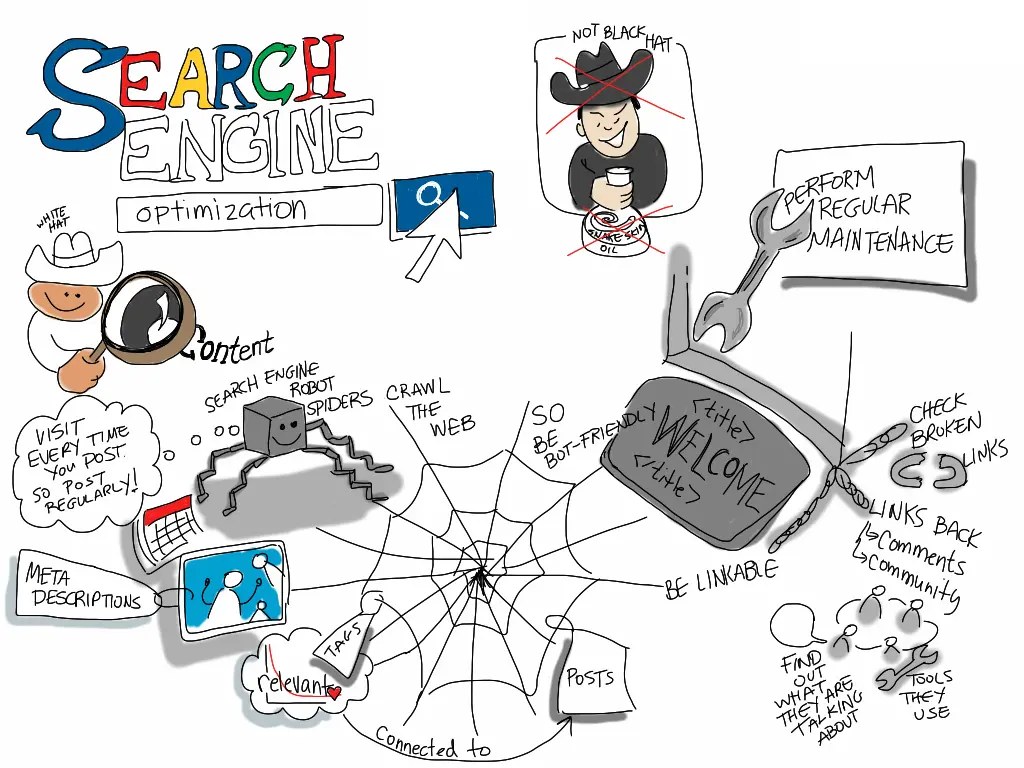 SEARCH
ENGINE
optimization
NOT BLACK HAT
SNAKE SKIN
OIL
PERFORM
REGULAR
MAINTENANCE
WHITE
HAT
Content
SEARCH ENGINE
ROBOT
SPIDERS
CRAWL
THE
WEB
SO
BE
BOT-FRIENDLY
<title>
WELCOME
</title>
CHECK
BROKEN
LINKS
VISIT
EVERY TIME
YOU POST.
SO POST
REGULARLY!
LINKS BACK
Comments
Community
META
DESCRIPTIONS
BE LINKABLE
TAGS
relevant
POSTS
Connected to
FIND
OUT
WHAT
THEY ARE
TALKING
ABOUT
TOOLS
THEY
USE